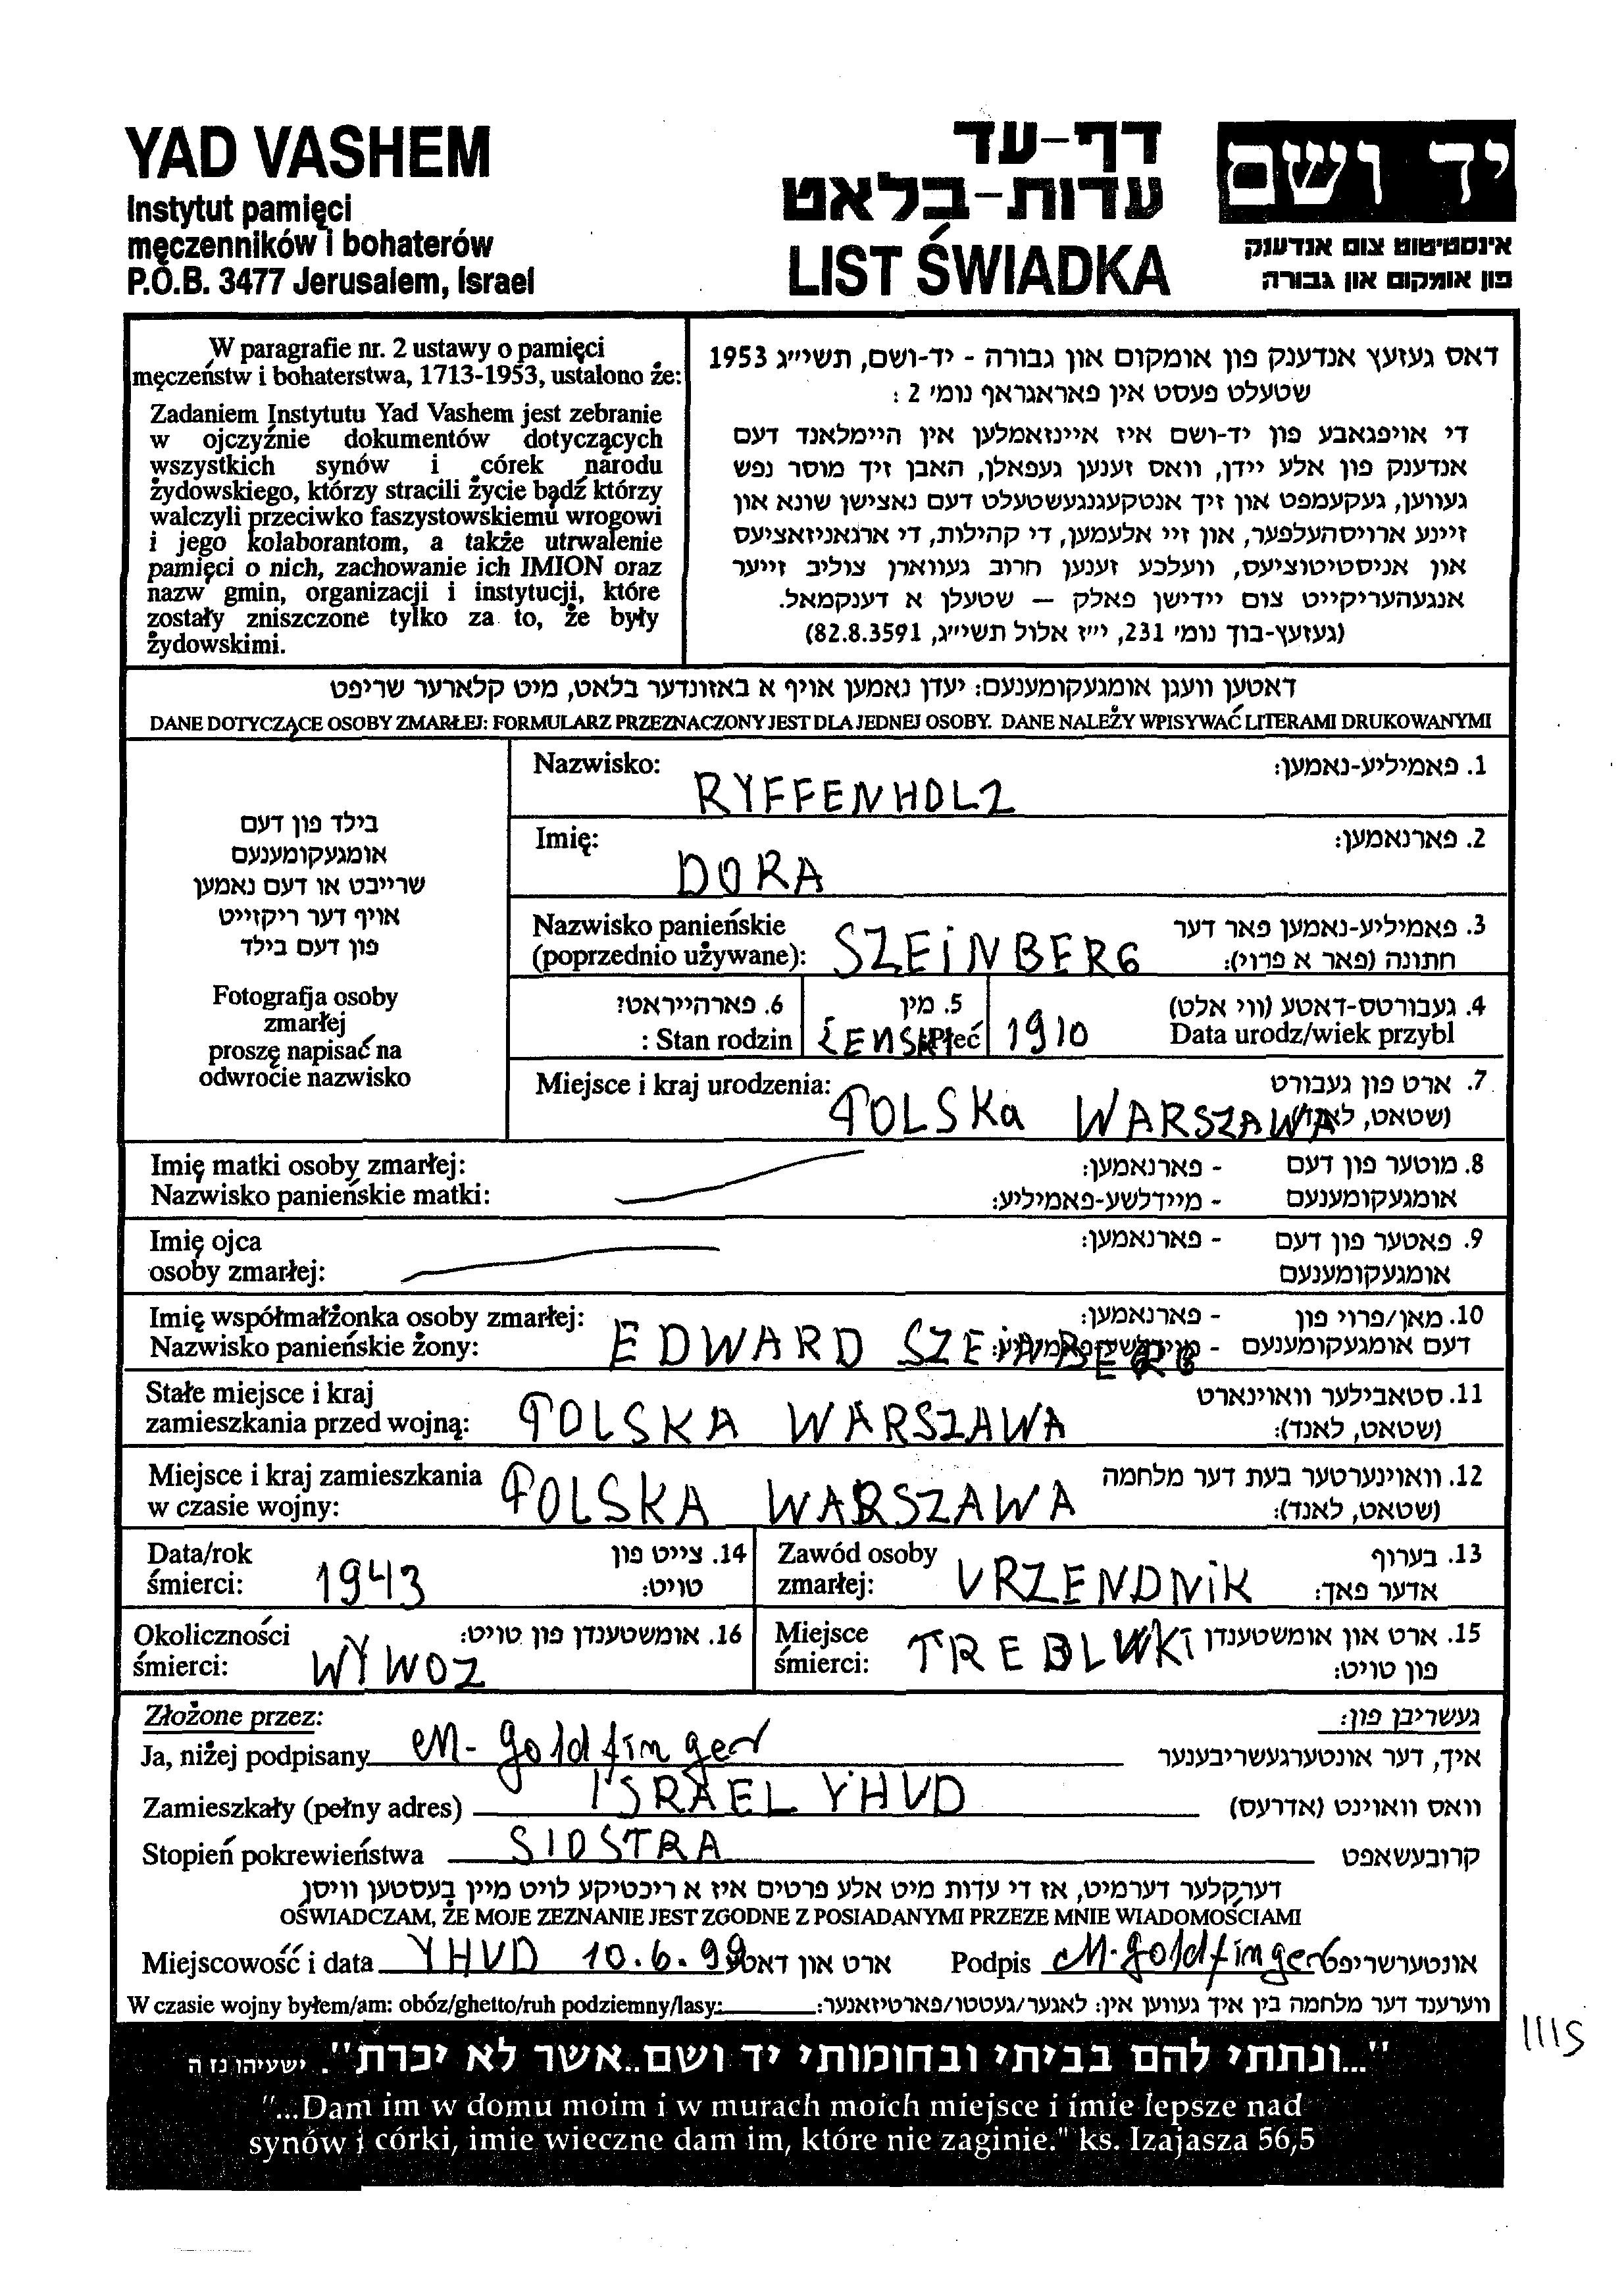 YAD VASHEM
Instytut pamięci
męczenników i bohaterów
P.O.B. 3477 Jerusalem, Israel
דף-עד
עדות-בלאט
LIST ŚWIADKA
יד ושם
אינסטיטוט צום אנדענק
פון אומקום און גבורה
W paragrafie nr. 2 ustawy o pamięci
męczeństw i bohaterstwa, 1713-1953, ustalono że:
Zadaniem Instytutu Yad Vashem jest zebranie
w ojczyźnie dokumentów dotyczących
wszystkich synów i córek narodu
żydowskiego, którzy stracili życie bądź którzy
walczyli przeciwko faszystowskiemu wrogowi
i jego kolaborantom, a także utrwalenie
pamięci o nich, zachowanie ich IMION oraz
nazw gmin, organizacji i instytucji, które
zostały zniszczone tylko za to, że były
żydowskimi.
דאס געזעץ אנדענק פון אומקום און גבורה - יד-ושם, תשי״ג 1953
שטעלט פעסט אין פאראגראף נומ׳ 2 :
די אויפגאבע פון יד-ושם איז איינזאמלען אין היימלאנד דעם
אנדענק פון אלע יידן, וואס זענען געפאלן, האבן זיך מוסר נפש
געווען, געקעמפט און זיך אנטקעגנגעשטעלט דעם נאצישן שונא און
זיינע ארויסהעלפער, און זיי אלעמען, די קהילות, די ארגאניזאציעס
און אניסטיטוציעס, וועלכע זענען חרוב געווארן צוליב זייער
אנגעהעריקייט צום יידישן פאלק – שטעלן א דענקמאל.
(געזעץ-בוך נומ׳ 231, י״ז אלול תשי״ג, 82.8.3591)
דאטען וועגן אומגעקומענעם: יעדן נאמען אויף א באזונדער בלאט, מיט קלארער שריפט
DANE DOTYCZĄCE OSOBY ZMARŁEJ: FORMULARZ PRZEZNACZONY JEST DLA JEDNEJ OSOBY. DANE NALEŻY WPISYWAĆ LITERAMI DRUKOWANYMI
בילד פון דעם
אומגעקומענעם
שרייבט או דעם נאמען
אויף דער ריקזייט
פון דעם בילד
Fotografja osoby
zmarłej
proszę napisać na
odwrocie nazwisko
Nazwisko: RYFFENHOLZ 1. פאמיליע-נאמען:
Imię: DORA 2. פארנאמען:
Nazwisko panieńskie 3. פאמיליע-נאמען פאר דער
(poprzednio używane): SZEINBERG חתונה (פאר א פרוי):
6. פארהייראט? 5. מין 4. געבורטס-דאטע (ווי אלט)
: Stan rodzin ŻENSKA Płeć 1910 Data urodz/wiek przybl
Miejsce i kraj urodzenia: POLSKa WARSZAWA 7. ארט פון געבורט
(שטאט, לאנד)
Imię matki osoby zmarłej: - פארנאמען: 8. מוטער פון דעם
Nazwisko panieńskie matki: - מיידלשע-פאמיליע: אומגעקומענעם
Imię ojca - פארנאמען: 9. פאטער פון דעם
osoby zmarłej: אומגעקומענעם
Imię współmałżonka osoby zmarłej: - פארנאמען: 10. מאן/פרוי פון
Nazwisko panieńskie żony: EDWARD SZEINBERG - מיידלשע-פאמיליע: דעם אומגעקומענעם
Stałe miejsce i kraj 11. סטאבילער וואוינארט
zamieszkania przed wojną: POLSKA WARSZAWA (שטאט, לאנד):
Miejsce i kraj zamieszkania 12. וואוינערטער בעת דער מלחמה
w czasie wojny: POLSKA WARSZAWA (שטאט, לאנד):
Data/rok 14. צייט פון
śmierci: 1943 טויט:
Zawód osoby 13. בערוף
zmarłej: URZENDNiK אדער פאך:
Okoliczności 16. אומשטענדן פון טויט:
śmierci: WYWOZ
Miejsce 15. ארט און אומשטענדן
śmierci: TREBLWKI פון טויט:
Złożone przez: געשריבן פון:
Ja, niżej podpisany M-Goldfinger איך, דער אונטערגעשריבענער
Zamieszkały (pełny adres) ISRAEL YHUD וואס וואוינט (אדרעס)
Stopień pokrewieństwa SIOSTRA קרובעשאפט
דערקלער דערמיט, אז די עדות מיט אלע פרטים איז א ריכטיקע לויט מיין בעסטען וויסן
OŚWIADCZAM, ŻE MOJE ZEZNANIE JEST ZGODNE Z POSIADANYMI PRZEZE MNIE WIADOMOŚCIAMI
Miejscowość i data YHUD 10.6.99 ארט און דאטע Podpis M-Goldfinger אונטערשריפט
W czasie wojny byłem/am: obóz/ghetto/ruh podziemny/lasy: ווערענד דער מלחמה בין איך געווען אין: לאגער/געטטו/פארטיזאנער:
1115
"...ונתתי להם בביתי ובחומותי יד ושם..אשר לא יכרת". ישעיהו נז ה
"...Dam im w domu moim i w murach moich miejsce i imie lepsze nad
synów i córki, imie wieczne dam im, które nie zaginie." ks. Izajasza 56,5